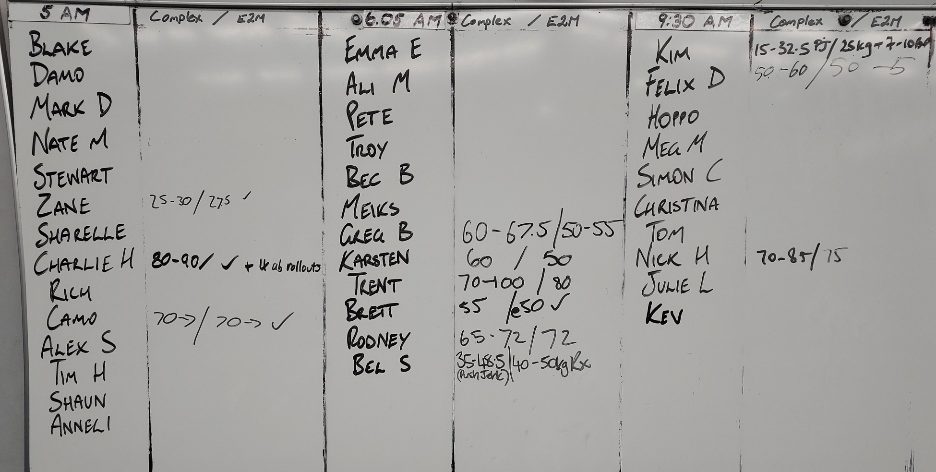 5 AM Complex / E2M
BLAKE
DAMO
MARK D
NATE M
STEWART
ZANE 25-30/275 ✓
SHARELLE
CHARLIE H 80-90/ ✓ + ab rollouts
RICH
CAMO 70→/70→ ✓
ALEX S
TIM H
SHAUN
ANNELI
6.05 AM Complex / E2M
EMMA E
ALI M
PETE
TROY
BEC B
MEIKS
GREG B 60-67.5/50-55
KARSTEN 60 / 50
TRENT 70-100 / 80
BRETT 55 /e50 ✓
RODNEY 65-72/72
BEL S 35-48.5/40-50kg Rx
(Push Jerk)
9:30 AM Complex /E2M
KIM 15-32.5 PJ/25kg
FELIX D 50-60/50-5
HOPPO
MEG M
SIMON C
CHRISTINA
TOM
NICK H 70-85/75
JULIE L
KEV